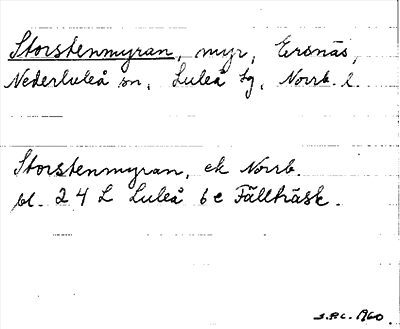 Storstenmyran, myr, Ersnäs,
Nederluleå sn, Luleå tg, Norrb. l.
Storstenmyran, ek Norrb.
bl. 24 L Luleå 6 e Fällträsk.
S.P.C. 1960.